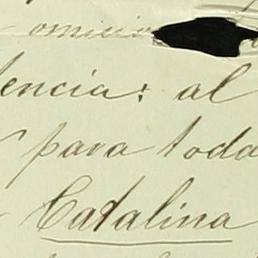 omisio
tencia: al
para toda
Catalina